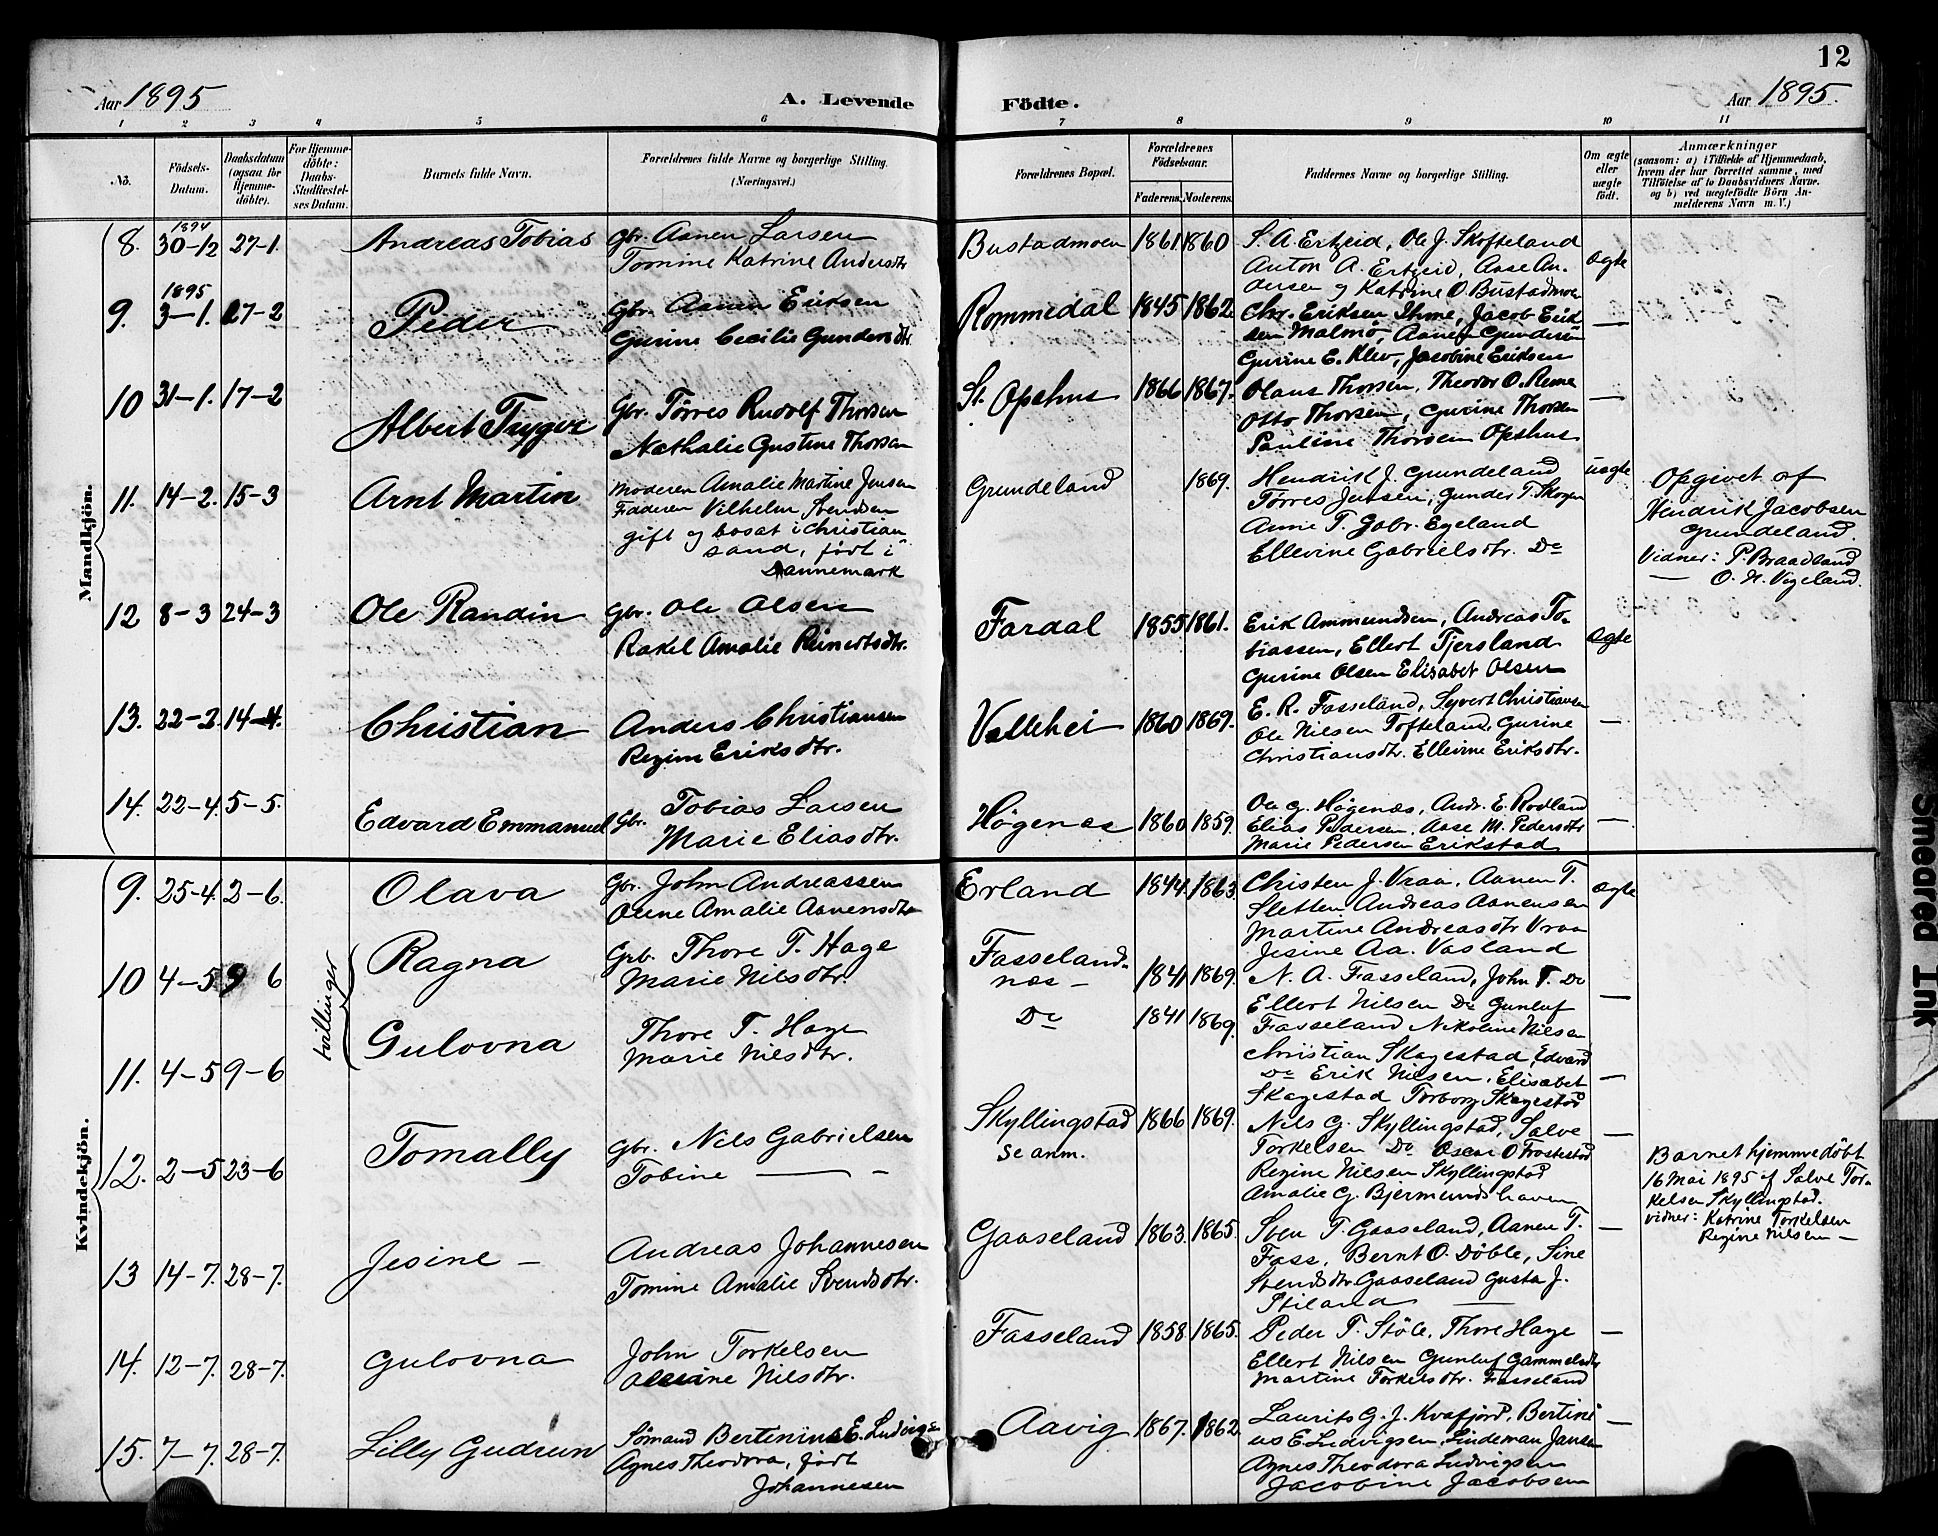 12
Aar 1895
A. Levende
Födte.
Aar 1895.
1 2 3 4 5 6 7 8 9 10 11
No.
Födsels-
Datum.
Daabsdatum
(ogsaa for
Hjemme-
döbte).
For Hjemme-
döbte:
Daabs-
Stadfæstel-
ses Datum.
Barnets fulde Navn.
Forældrenes fulde Navne og borgerlige Stilling.
(Næringsvei.)
Forældrenes Bopæl.
Forældrenes
Födselsaar.
Faderens. Moderens.
Faddernes Navne og borgerlige Stilling.
Om ægte
eller
uægte
födt.
Anmærkninger
(saasom: a) i Tilfælde af Hjemmedaab,
hvem der har forrettet samme, med
Tilföielse af to Daabsvidners Navne.
og b) ved uægtefödte Börn An-
melderens Navn m. V.)
Mandkjön.
8. 1894 30-12 27-1. Andreas Tobias
Gbr. Aanen Larsen
Tomine Katrine Andersdtr
Bustadmoen 1861. 1860
S. A. Ertzeid, Ole J. Skofteland
Anton A. Ertzeid, Aase An-
dersen og Katrine O. Bustadmoen
ægte
9. 1895 3-1. 27-2 Peder
Gbr. Aanen Eriksen
Gurine Cecilie Gundersdtr
Rommedal 1845 1862
Chr. Eriksen Ihme, Jacob Erik
sen Malmö, Aanen Gundersen
Gurine E. Klev, Jacobine Eriksen
—
10 31-1. 17-2 Albert Trygve
Gbr. Törres Rudolf Thorsen
Nathalie Gustine Thorsen
St. Opshus 1866 1867.
Olaus Thorsen, Theodor O. Reme
Otto Thorsen, Gurine Thorsen
Pauline Thorsen Opshus
—
11. 14-2. 15-3 Arnt Martin
Moderen Amalie Martine Jensen
Faderen Vilhelm Svendsen
gift og bosat i Christian
sand, født i
Dannemark
Grundeland 1869.
Hendrik J. Grundeland
Törres Jensen, Gunder T. Skogen
Anne T. Gabr. Egeland
Ellevine Gabrielsdtr. Do
uægte
Opgivet af
Hendrik Jacobsen
Grundeland.
Vidner: P. Braadland
— O. N. Vigeland.
12 8-3 24-3 Ole Randin
Gbr. Ole Olsen
Rakel Amalie Reinertsdtr.
Fardal 1855 1861.
Erik Ammundsen, Andreas To-
biassen, Ellert Tjersland
Gurine Olsen Elisabet Olsen
ægte
13. 22-3. 14-4. Christian
Anders Christiansen
Regine Eriksdtr.
Vallehei 1860 1869.
E. R. Fasseland, Syvert Christiansen
Ole Nilsen Tofteland, Gurine
Christiansdtr. Ellevine Eriksdtr.
—
14. 22-4. 5-5. Edvard Emmanuel
Gbr. Tobias Larsen
Marie Eliasdtr.
Høgenæs 1860 1859.
G. Høgenæs, Andr. E. Rodland
Elias Pedersen, Aase M. Pedersdtr
Marie Pedersen Erikstad
—
Kvindekjön.
9. 25-4. 2-6. Olava
Gbr. John Andreassen
Amalie Aanensdtr
Erland 1844. 1863.
Christen J. Vraa, Aanen T.
Sletten Andreas Aanensen
Martine Andreasdtr Vraa
Jesine Aa. Vasland
ægte
tvillinger
10 4-5 9 6 Ragna
Grb. Thore T. Hage
Marie Nilsdtr.
Fasselands-
næs — 1841 1869.
N. A. Fasseland, John T. Do
Ellert Nilsen Do Gunluf
Fasseland Nikoline Nilsen
—
11. 4-5 9-6 Gulovna
Thore T. Hage
Marie Nilsdtr.
Do 1841 1869.
Christian Skagestad, Edvard
Do Erik Nilsen, Elisabet
Skagestad Torborg Skagestad
—
12. 2-5 23-6 Tomally
Gbr. Nils Gabrielsen
Tobine —
Skyllingstad
Se anm. 1866 1869.
Nils G. Skyllingstad, Salve
Torkelsen Do Oscar O Frostestad
Regine Nilsen Skyllingstad
Amalie G. Bjermundshaven
—
Barnet hjemmedøbt
16 Mai 1895 af Salve Tor-
kelsen Skyllingstad.
vidner: Katrine Torkelsen
Regine Nilsen —
13 14-7. 28-7. Jesine —
Andreas Johannesen
Tomine Amalie Svendsdtr.
Gaaseland 1863. 1865.
Sven T. Gaaseland, Aanen T.
Foss, Bernt O. Døble, Sine
Svendsdtr Gaaseland Gusta J.
Stiland —
—
14. 12-7. 28-7. Gulovna
John Torkelsen
Nilsdtr.
Fasseland 1858 1865.
Peder T. Støle, Thore Hage
Ellert Nilsen Gunluf Gammelsdtr
Martine Torkelsdtr. Fasseland
—
15. 7-7. 28-7. Lilly Gudrun
Sømand Bertinius E. Ludvigs
Agnes Theodora, født
Johannesen
Aavig 1867. 1862
Laurits G. J. Kvafjord, Bertini
us E. Ludvigsen, Lindeman Jansen
Agnes Theodora Ludvigsen
Jacobine Jacobsen
—
Smeared Ink